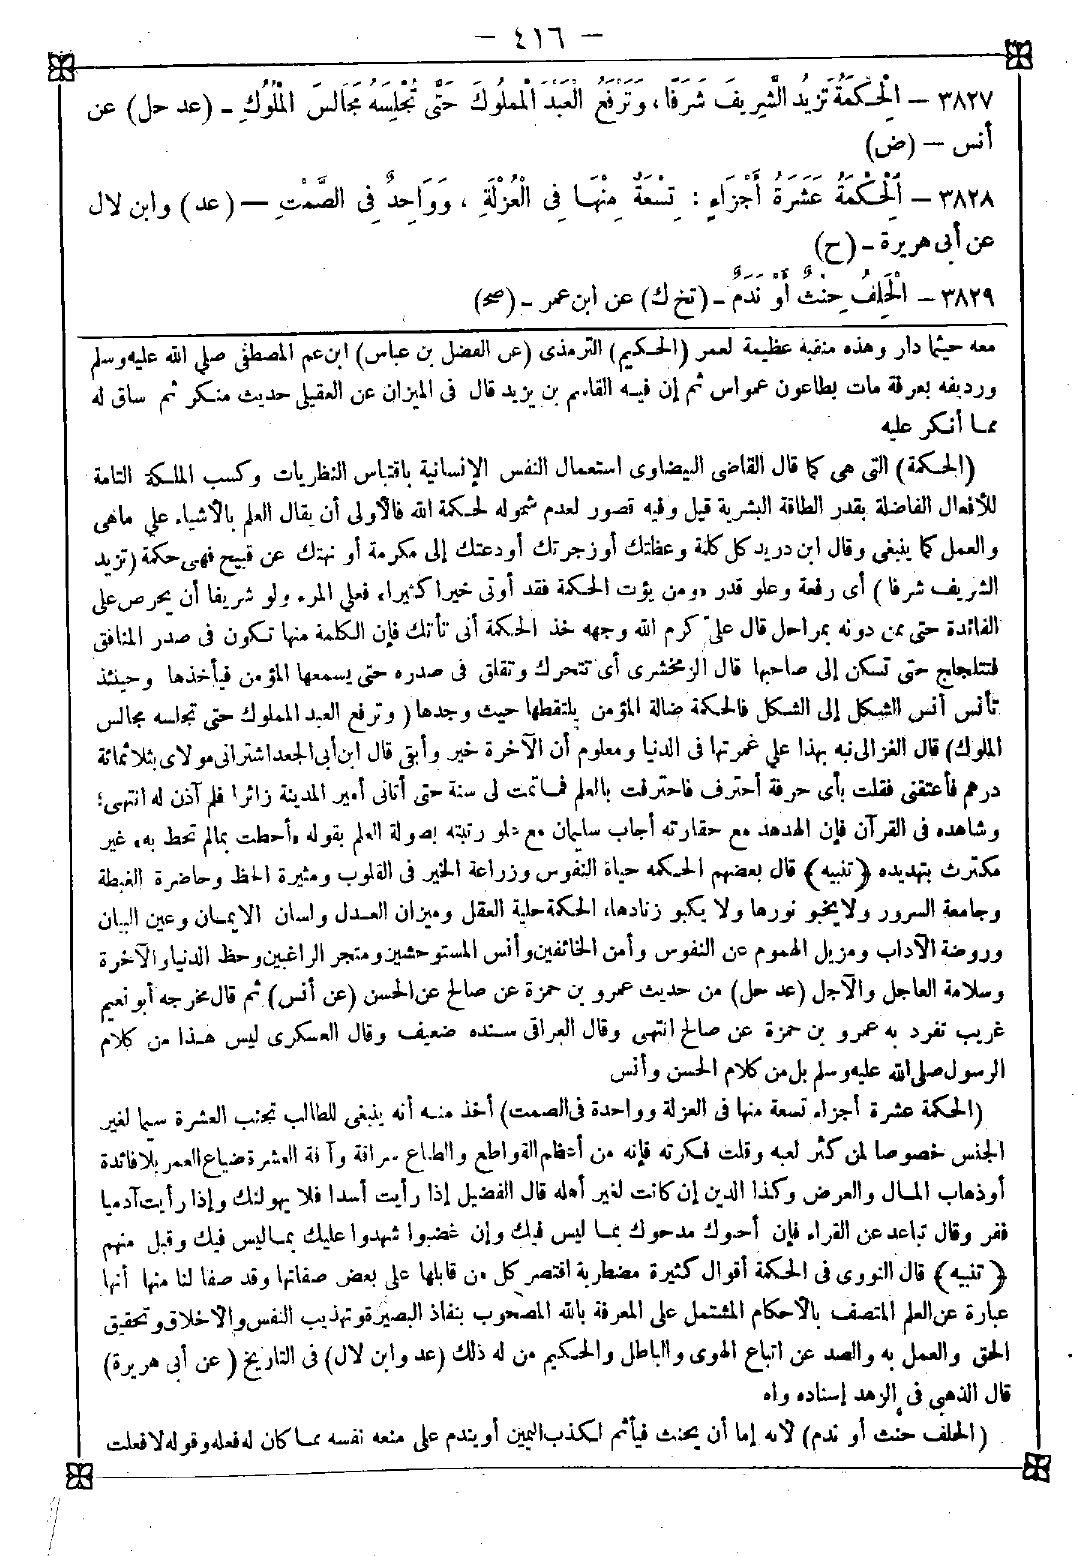 — ٤١٦ —
٣٨٢٧ — الْحِكْمَةُ تَزِيدُ الشَّرِيفَ شَرَفًا، وَتَرْفَعُ الْعَبْدَ الْمَمْلُوكَ حَتَّى تُجْلِسَهُ مَجَالِسَ الْمُلُوكِ ـ (عد حل) عن
أنس — (ض)
٣٨٢٨ — اَلْحِكْمَةُ عَشَرَةُ أَجْزَاءٍ : تِسْعَةٌ مِنْهَا فِى الْعُزْلَةِ ، وَوَاحِدٌ فِى الصَّمْتِ — (عد) وابن لال
عن أبى هريرة ـ (ح)
٣٨٢٩ — الْحَلِفُ حِنْثٌ أَوْ نَدَمٌ ـ (تخ ك) عن ابن عمر ـ (صح)
معه حيثما دار وهذه منقبة عظيمة لعمر (الحكيم) الترمذى (عن الفضل بن عباس) ابن عم المصطفى صلى الله عليه وسلم
ورديفه بعرفة مات بطاعون عمواس ثم إن فيه القاسم بن يزيد قال فى الميزان عن العقيلى حديث منكر ثم ساق له
مما أنكر عليه
(الحكمة) التى هى كما قال القاضى البيضاوى استعمال النفس الإنسانية باقتباس النظريات وكسب الملكة التامة
للأفعال الفاضلة بقدر الطاقة البشرية قيل وفيه قصور لعدم شموله لحكمة الله فالأولى أن يقال العلم بالأشياء على ماهى
والعمل كما ينبغى وقال ابن دريد كل كلمة وعظتك أو زجرتك أو دعتك إلى مكرمة أو نهتك عن قبيح فهى حكمة (تزيد
الشريف شرفا) أى رفعة وعلو قدر «ومن يؤت الحكمة فقد أوتى خيرا كثيرا» فعلى المرء ولو شريفا أن يحرص على
الفائدة حتى ممن دونه بمراحل قال علىّ كرم الله وجهه خذ الحكمة أنى تأتك فإن الكلمة منها تكون فى صدر المنافق
فتتلجلج حتى تسكن إلى صاحبها قال الزمخشرى أى تتحرك وتقلق فى صدره حتى يسمعها المؤمن فيأخذها وحينئذ
تأنس أنس الشكل إلى الشكل فالحكمة ضالة المؤمن يلتقطها حيث وجدها (وترفع العبد المملوك حتى تجلسه مجالس
الملوك) قال الغزالى نبه بهذا على ثمرتها فى الدنيا ومعلوم أن الآخرة خير وأبقى قال ابن أبى الجعد اشترانى مولاى بثلاثمائة
درهم فأعتقنى فقلت بأى حرفة أحترف فاحترفت بالعلم فما تمت لى سنة حتى أتانى أمير المدينة زائرا فلم آذن له انتهى؛
وشاهده فى القرآن فإن الهدهد مع حقارته أجاب سليمان مع علو رتبته بصولة العلم بقوله «أحطت بمالم تحط به» غير
مكترث بتهديده ﴿تنبيه﴾ قال بعضهم الحكمه حياة النفوس وزراعة الخير فى القلوب ومثيرة الحظ وحاضرة الغبطة
وجامعة السرور ولا يخبو نورها ولا يكبو زنادها، الحكمة حلية العقل وميزان العدل ولسان الايمان وعين البيان
وروضة الآداب ومزيل الهموم عن النفوس وأمن الخائفين وأنس المستوحشين ومتجر الراغبين وحظ الدنيا والآخرة
وسلامة العاجل والآجل (عد حل) من حديث عمرو بن حمزة عن صالح عن الحسن (عن أنس) ثم قال مخرجه أبو نعيم
غريب تفرد به عمرو بن حمزة عن صالح انتهى وقال العراقى سنده ضعيف وقال العسكرى ليس هذا من كلام
الرسول صلى الله عليه وسلم بل من كلام الحسن وأنس
(الحكمة عشرة أجزاء تسعة منها فى العزلة وواحدة فى الصمت) أخذ منه أنه ينبغى للطالب تجنب العشرة سيما لغير
الجنس خصوصا لمن كثر لعبه وقلت فكرته فإنه من أعظم القواطع والطباع سراقة وآفة العشرة ضياع العمر بلا فائدة
أو ذهاب المال والعرض وكذا الدين إن كانت لغير أهله قال الفضيل إذا رأيت أسدا فلا يهولنك وإذا رأيت آدميا
ففر وقال تباعد عن القراء فإن أحبوك مدحوك بما ليس فيك وإن غضبوا شهدوا عليك بماليس فيك وقبل منهم
﴿تنبيه﴾ قال النووى فى الحكمة أقوال كثيرة مضطربة اقتصر كل من قابلها على بعض صفاتها وقد صفا لنا منها أنها
عبارة عن العلم المتصف بالأحكام المشتمل على المعرفة بالله المصحوب بنفاذ البصيرة وتهذيب النفس والاخلاق وتحقيق
الحق والعمل به والصد عن اتباع الهوى والباطل والحكيم من له ذلك (عد وابن لال) فى التاريخ (عن أبى هريرة)
قال الذهبى فى الزهد إسناده واه
(الحلف حنث أو ندم) لأنه إما أن يحنث فيأثم لكذب اليمين أو يندم على منعه نفسه مما كان له فعله وقوله لا فعلت